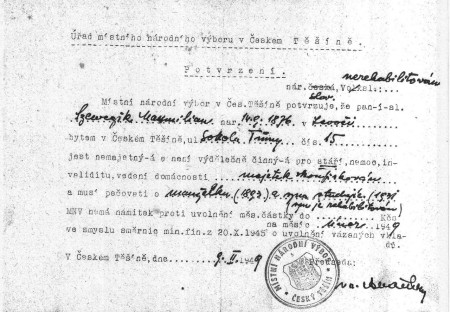 Úřad místního národního výboru v Českem Těšíně.
Potvrzení.
nerehabilitován
nár. česká, Volksl.:
slov.
Místní národní výbor v Čes.Těšíně potvrzuje, že pan-í-sl.
Szewczik Maxmilian nar. 14.9.1876.
bytem v Českém Těšíně, ul. Sokola Tůmy čís. 15
jest nemajetný-á s není výdělečně činný-á pro stáří, nemoc, in-
validitu, vedení domácnosti majetek skonfiskován
a musí pečovati o manželku (1893) a syna
syn je rehabilitován)
MNV nemá námitek proti uvolnění měs.částky do Kčs
na měsíc únor 1949
ve smyslu směrnic min.fin. z 20.X.1945 o uvolnění vázených vkla-
dů.
V Českém Těšíně, dne 9. II. 1949 Předseda:
MÍSTNÍ NÁRODNÍ VÝBOR
ČESKÝ TĚŠÍN